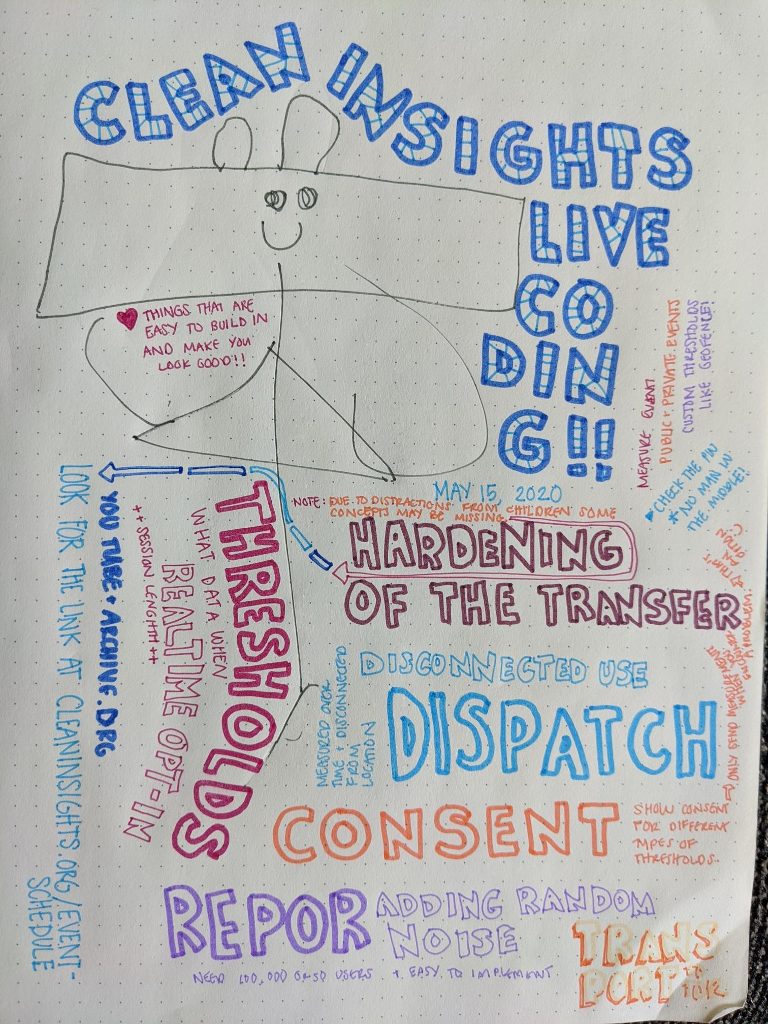 CLEAN INSIGHTS
LIVE
CO
DIN
G!!
♥ THINGS THAT ARE
EASY TO BUILD IN
AND MAKE YOU
LOOK GOOD!!
MEASURE EVENT
PUBLIC + PRIVATE EVENTS
CUSTOM THRESHOLDS
LIKE GEOFENCE!
CHECK THE PIN
* NO MAN IN
THE MIDDLE!
MAY 15, 2020
NOTE: DUE TO DISTRACTIONS FROM CHILDREN SOME
CONCEPTS MAY BE MISSING
HARDENING
OF THE TRANSFER
THRESHOLDS
WHAT DATA WHEN
REALTIME OPT-IN
++ SESSION LENGHTH ++
YOU TUBE + ARCHIVE.ORG
LOOK FOR THE LINK AT CLEANINSIGHTS.ORG/EVENT-
SCHEDULE
DISCONNECTED USE
MEASURED OVER
TIME + DISCONNECTED
FROM
LOCATION
DISPATCH
ONLY KIND
CONSENT
SHOW CONSENT
FOR DIFFERENT
TYPES OF
THRESHOLDS.
REPOR
ADDING RANDOM
NOISE
NEED 100,000 OR SO USERS + EASY TO IMPLEMENT
TRANS
PORT